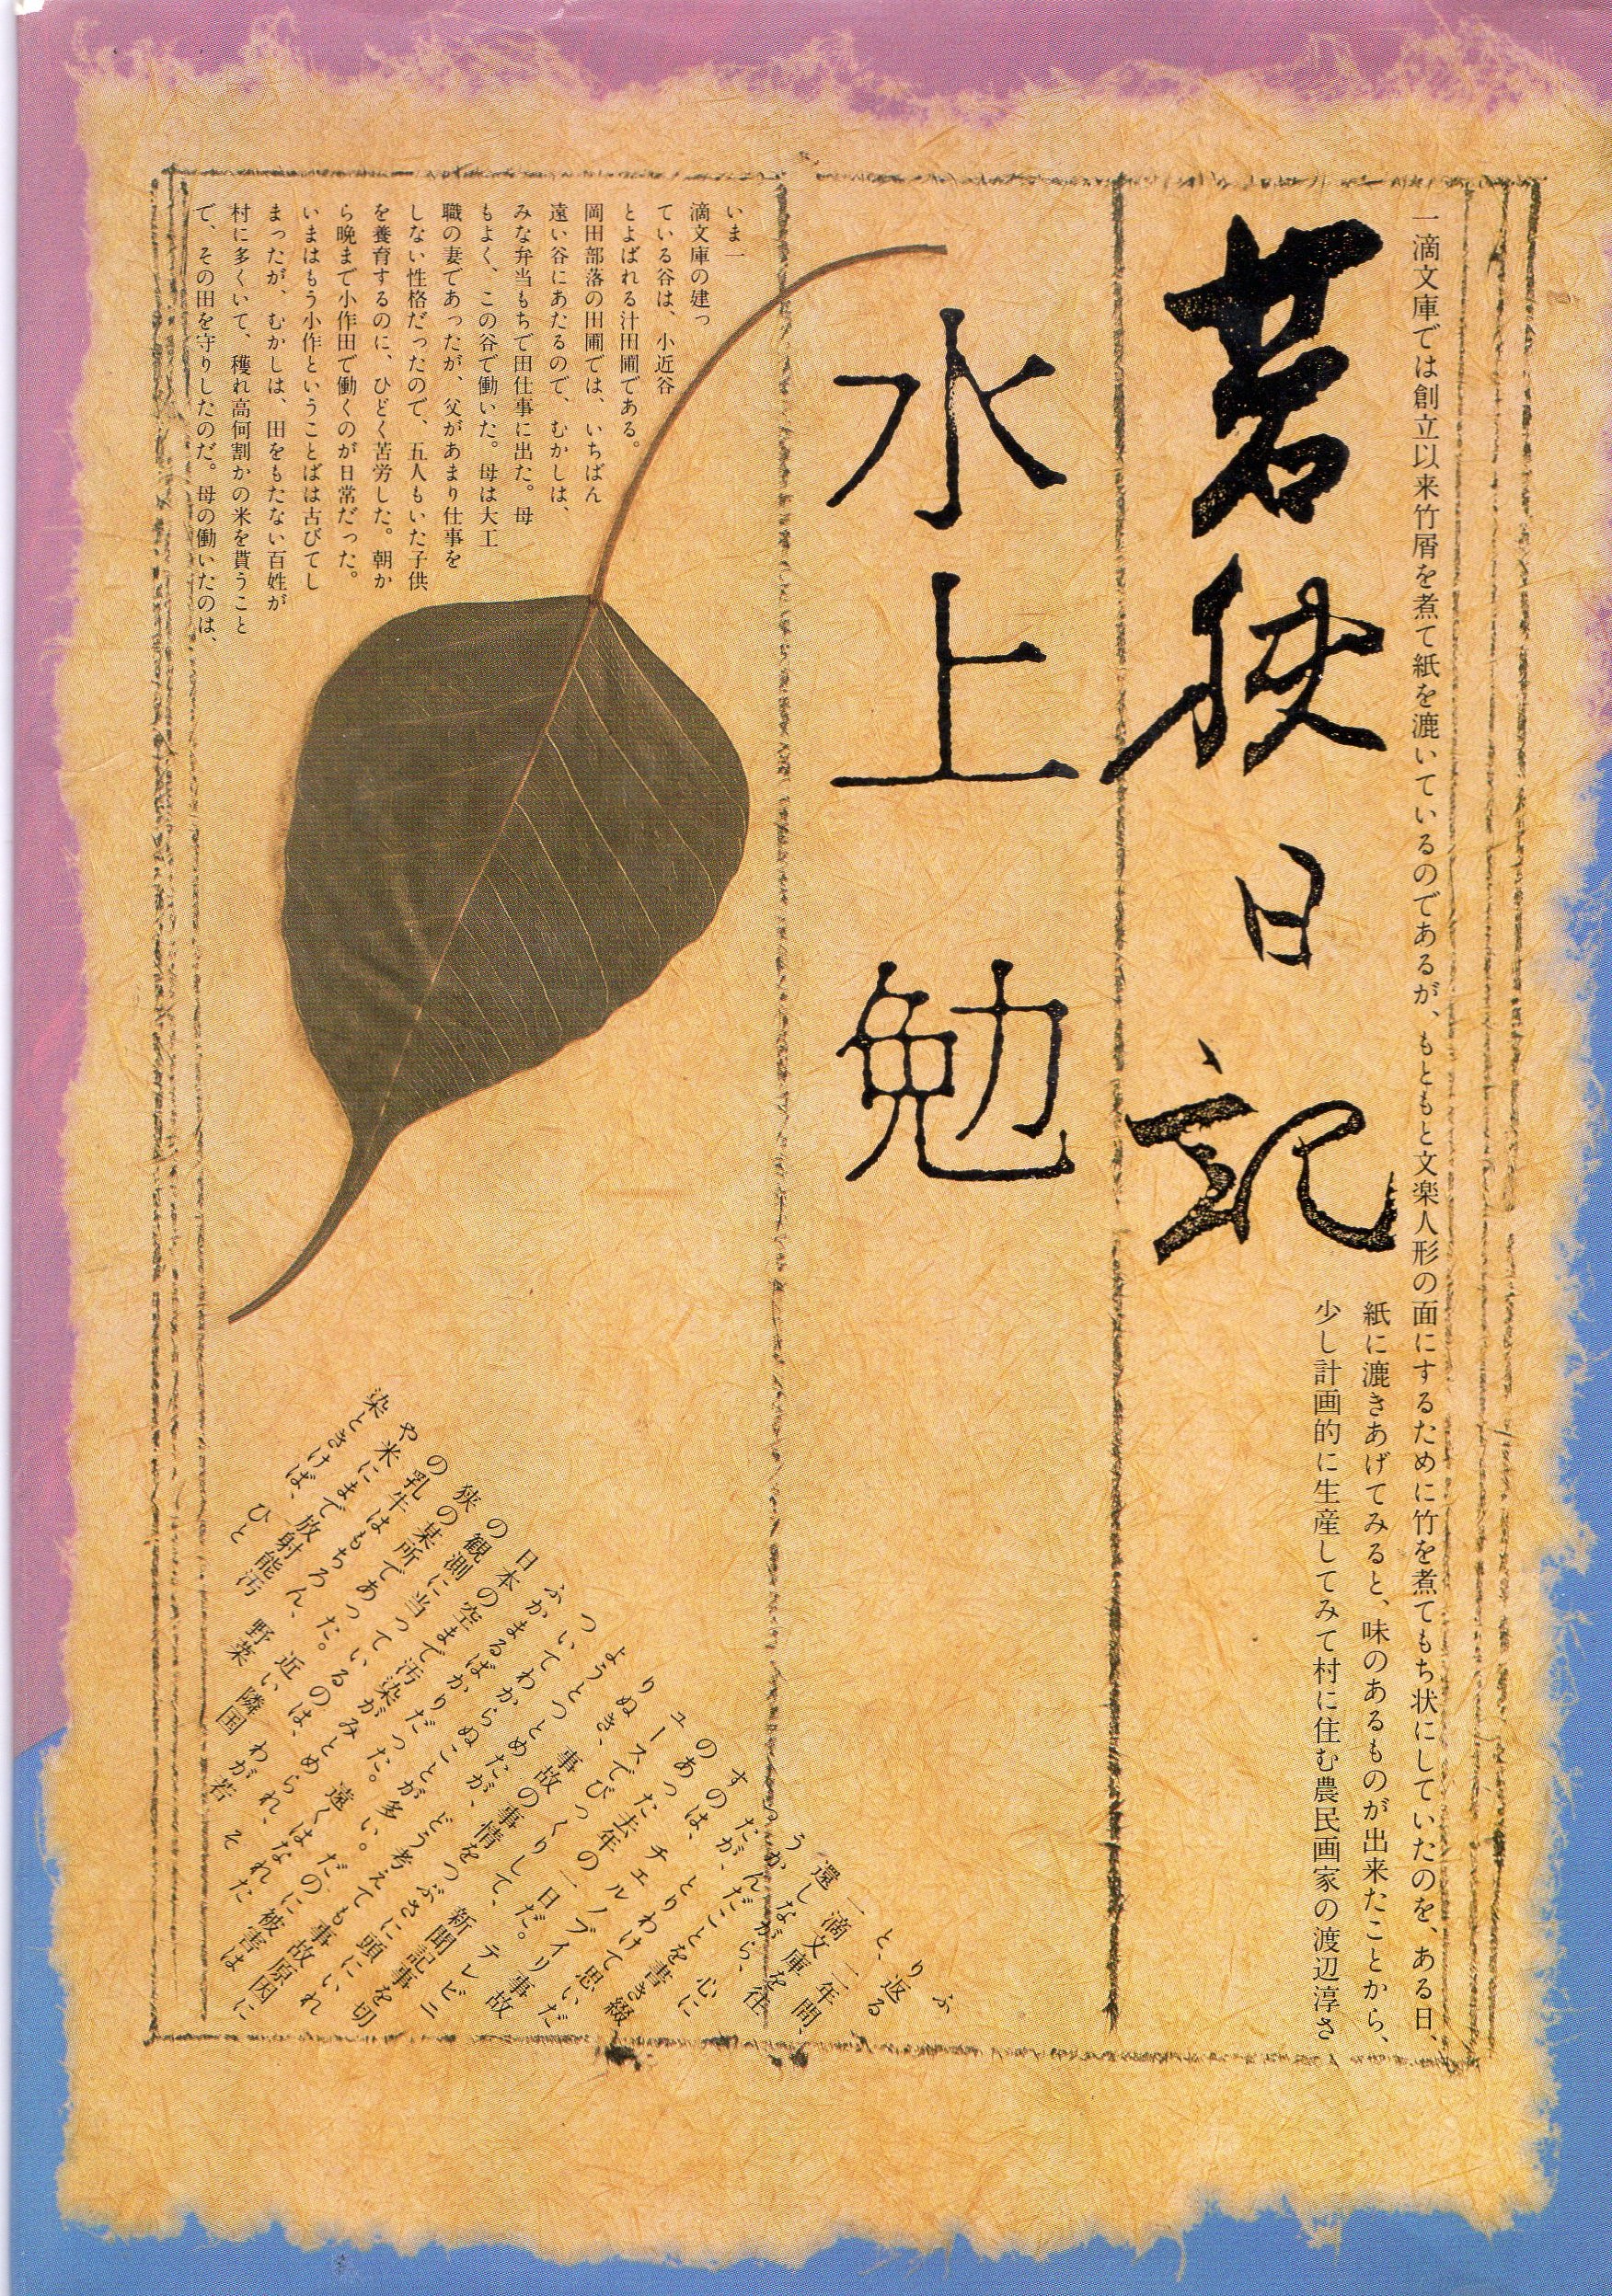 一滴文庫では創立以来竹屑を煮て紙を漉いているのであるが、もともと文楽人形の面にするために竹を煮てもち状にしていたのを、ある日、
紙に漉きあげてみると、味のあるものが出来たことから、
少し計画的に生産してみて村に住む農民画家の渡辺淳さ
若狭日記
水上勉
いま一
滴文庫の建っ
ている谷は、小近谷
とよばれる汁田圃である。
岡田部落の田圃では、いちばん
遠い谷にあたるので、むかしは、
みな弁当もちで田仕事に出た。母
もよく、この谷で働いた。母は大工
職の妻であったが、父があまり仕事を
しない性格だったので、五人もいた子供
を養育するのに、ひどく苦労した。朝か
ら晩まで小作田で働くのが日常だった。
いまはもう小作ということばは古びてし
まったが、むかしは、田をもたない百姓が
村に多くいて、穫れ高何割かの米を貰うこと
で、その田を守りしたのだ。母の働いたのは、
ふ
り返る
と、二年間、
一滴文庫を往
還しながら、心に
うかんだことを書き綴
ったが、とりわけて思いだ
すのは、チェルノブイリ事故
のあった去年の一日だ。テレビニ
ュースでびっくりして、新聞記事を切
りぬき、事故の事情をつぶさに頭にいれ
ようとつとめたが、どう考えても事故原因に
ついてわからぬことが多い。だのに被害は
ふかまるばかりだった。遠くはなれた
日本の空まで汚染がみとめられ、そ
の観測に当っているのは、わが若
狭の某所であった。近い隣国
の乳牛はもちろん、野菜
や米にまで放射能汚
染ときけば、ひと